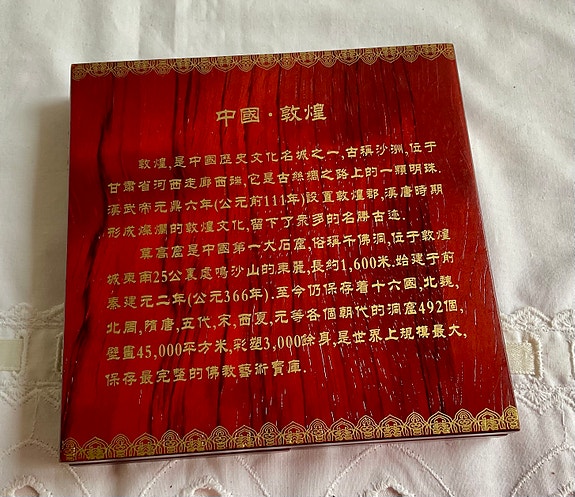 中國·敦煌
敦煌,是中國歷史文化名城之一,古稱沙洲,位于
甘肅省河西走廊西端,它是古絲綢之路上的一顆明珠.
漢武帝元鼎六年(公元前111年)設置敦煌郡,漢唐時期
形成燦爛的敦煌文化,留下了衆多的名勝古迹.
莫高窟是中國第一大石窟,俗稱千佛洞,位于敦煌
城東南25公里處鳴沙山的東麓,長約1,600米.始建于前
秦建元二年(公元366年).至今仍保存着十六國,北魏,
北周,隋唐,五代,宋,西夏,元等各個朝代的洞窟492個,
壁畫45,000平方米,彩塑3,000餘身,是世界上規模最大,
保存最完整的佛教藝術寶庫.